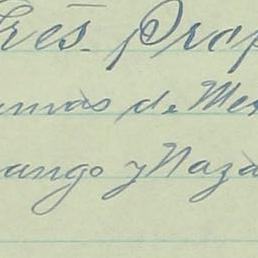 Gres. Prop
umas de Mex
ango y Naza